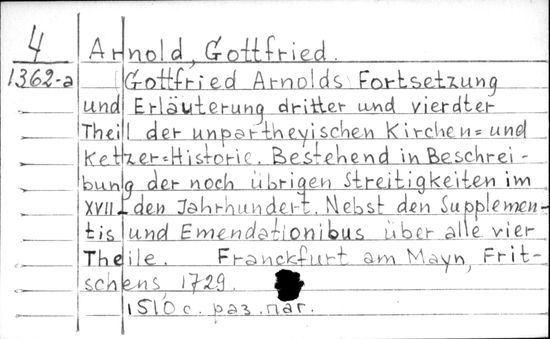 4
1362-a
Arnold, Gottfried.
Gottfried Arnolds Fortsetzung
und Erläuterung dritter und vierdter
Theil der unpartheyischen Kirchen= und
Ketzer=Historie. Bestehend in Beschrei-
bung der noch übrigen Streitigkeiten im
XVII-den Jahrhundert. Nebst den Supplemen-
tis und Emendationibus über alle vier
Theile. Franckfurt am Mayn, Frit-
schens, 1729.
1510 c. раз. паг.